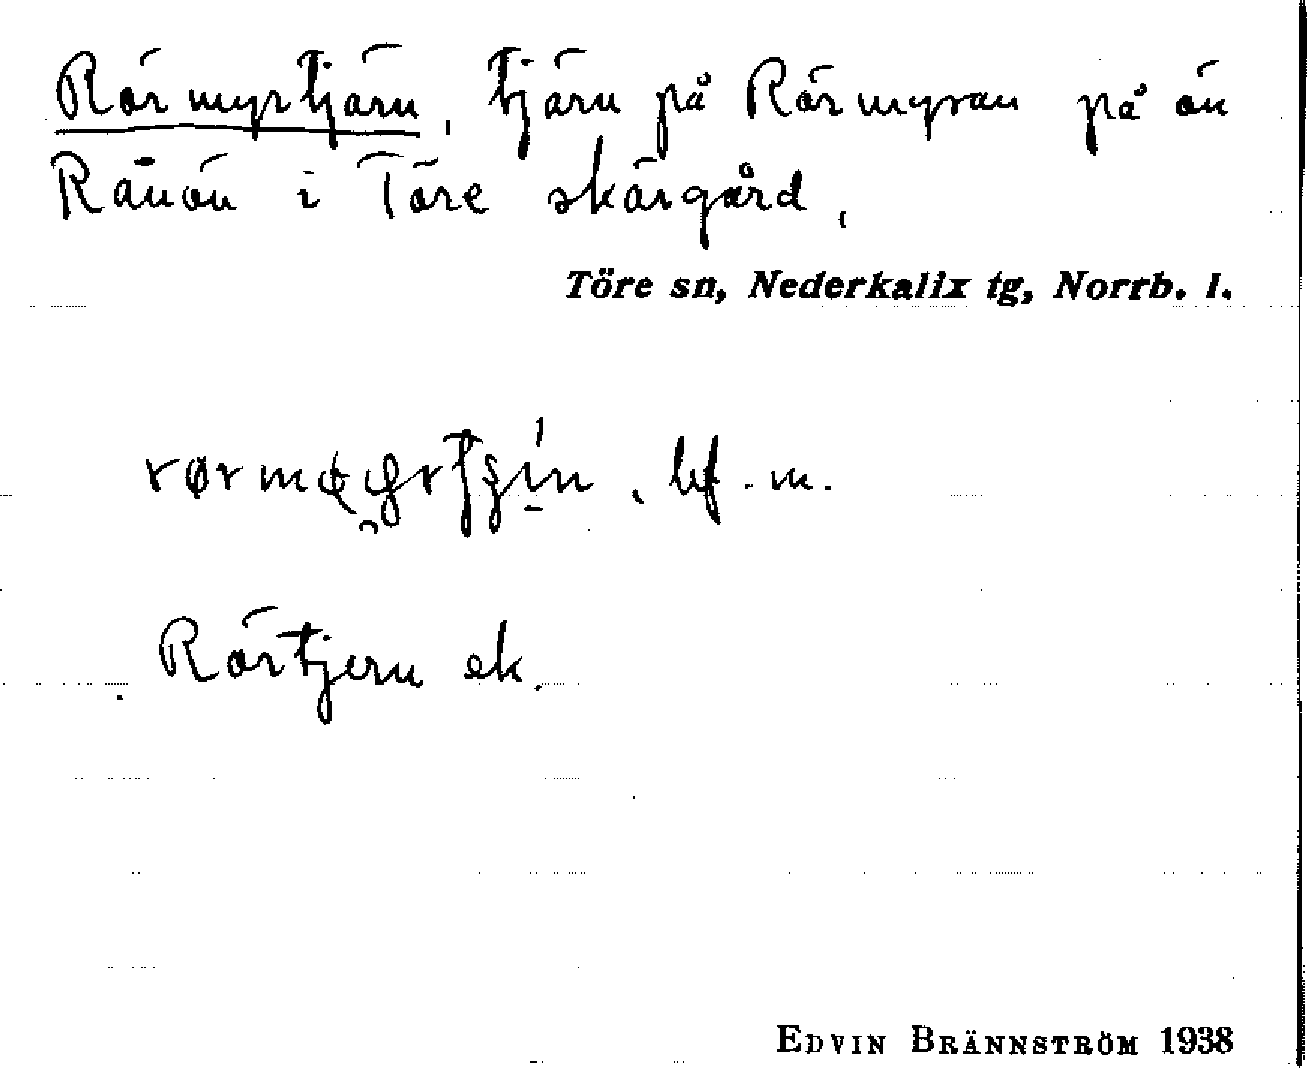 Rörmyrtjärn, tjärn på Rörmyran på ön
Rånön i Töre skärgård,
Töre sn, Nederkalix tg, Norrb. l.
bf. m.
Rörtjern ek.
EDVIN BRÄNNSTRÖM 1938